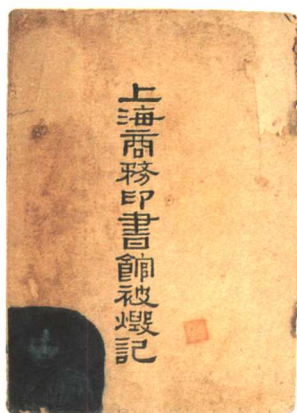 上海商務印書館被燬記